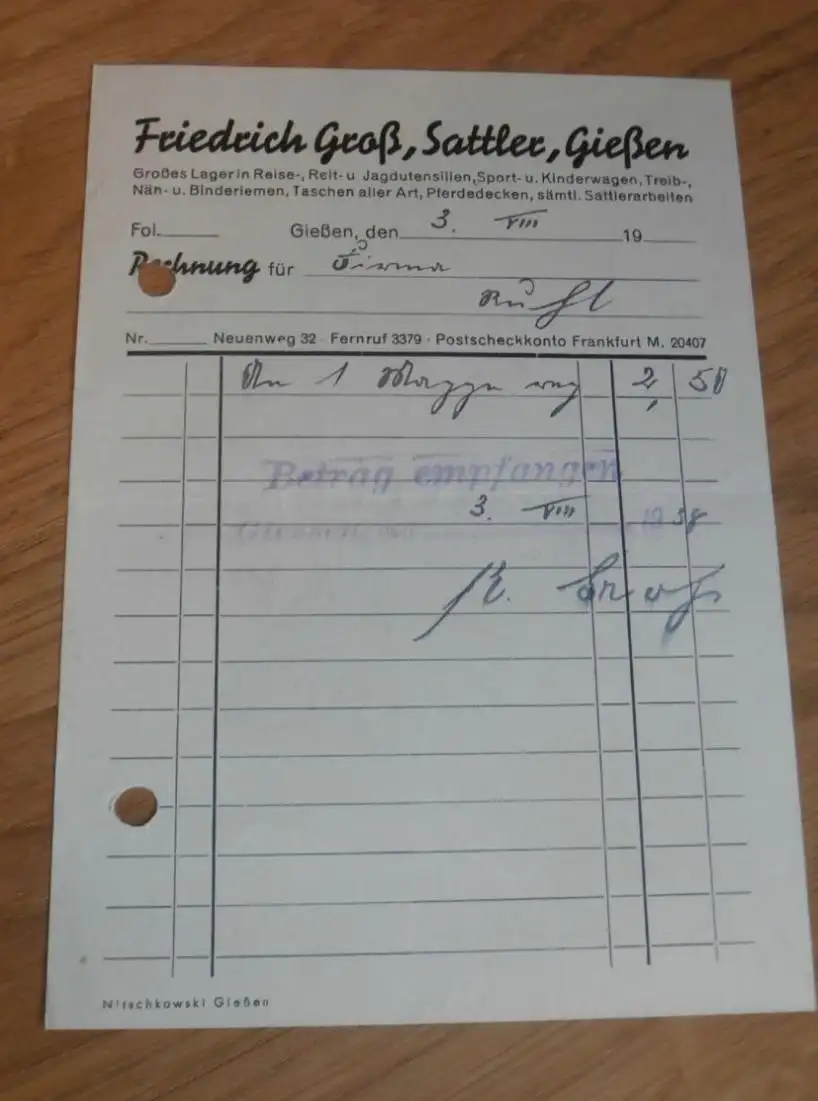 Friedrich Groß, Sattler, Gießen
Großes Lager in Reise-, Reit- u Jagdutensilien, Sport- u. Kinderwagen, Treib-,
Näh- u. Binderiemen, Taschen aller Art, Pferdedecken, sämtl. Sattlerarbeiten
Fol. Gießen, den 3. VIII 19
Rechnung für Firma
Ruhl
Nr. Neuenweg 32 - Fernruf 3379 · Postscheckkonto Frankfurt M. 20407
An 1 2, 50
Betrag empfangen
3. VIII 1938
Nitschkowski Gießen